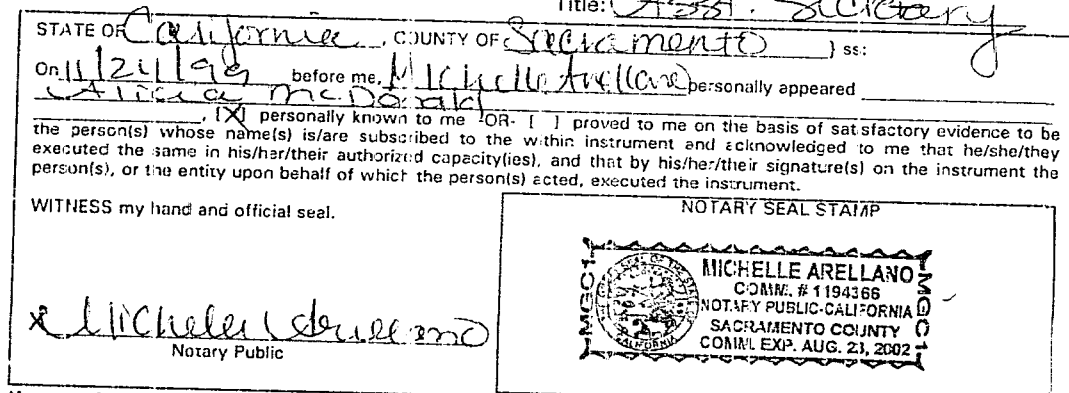 Title: Asst. Secretary
STATE OF California, COUNTY OF Sacramento } ss:
On 11/24/99 before me, Michelle Arellano personally appeared
Alicia McDonald
, [X] personally known to me -OR- [ ] proved to me on the basis of satisfactory evidence to be
the person(s) whose name(s) is/are subscribed to the within instrument and acknowledged to me that he/she/they
executed the same in his/her/their authorized capacity(ies), and that by his/her/their signature(s) on the instrument the
person(s), or the entity upon behalf of which the person(s) acted, executed the instrument.
WITNESS my hand and official seal.
NOTARY SEAL STAMP
MICHELLE ARELLANO
COMM. # 1194366
NOTARY PUBLIC-CALIFORNIA
SACRAMENTO COUNTY
COMM. EXP. AUG. 23, 2002
MGC1
MGC1
x Michelle Arellano
Notary Public